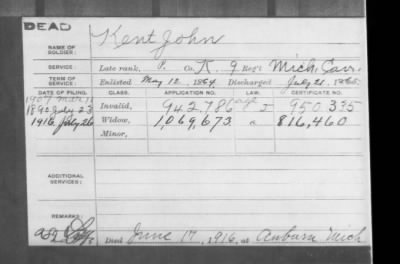 DEAD
NAME OF SOLDIER: Kent John
SERVICE: Late rank, P. Co. K, 9 Reg't Mich. Cav.
TERM OF SERVICE: Enlisted May 12, 1864, Discharged July 21, 1865
DATE OF FILING. CLASS. APPLICATION NO. LAW. CERTIFICATE NO.
1907 Mar
1890 July 23 Invalid, 942,786 950,335
1916 July 26 Widow, 1,069,673 816,460
Minor,
ADDITIONAL SERVICES:
REMARKS:
Died June 17, 1916, at Auburn Mich